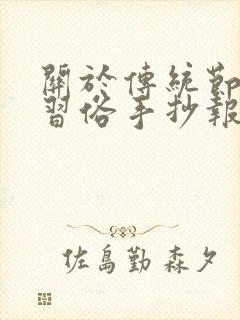 關於傳統節
習俗手抄報
佐島勤 森夕